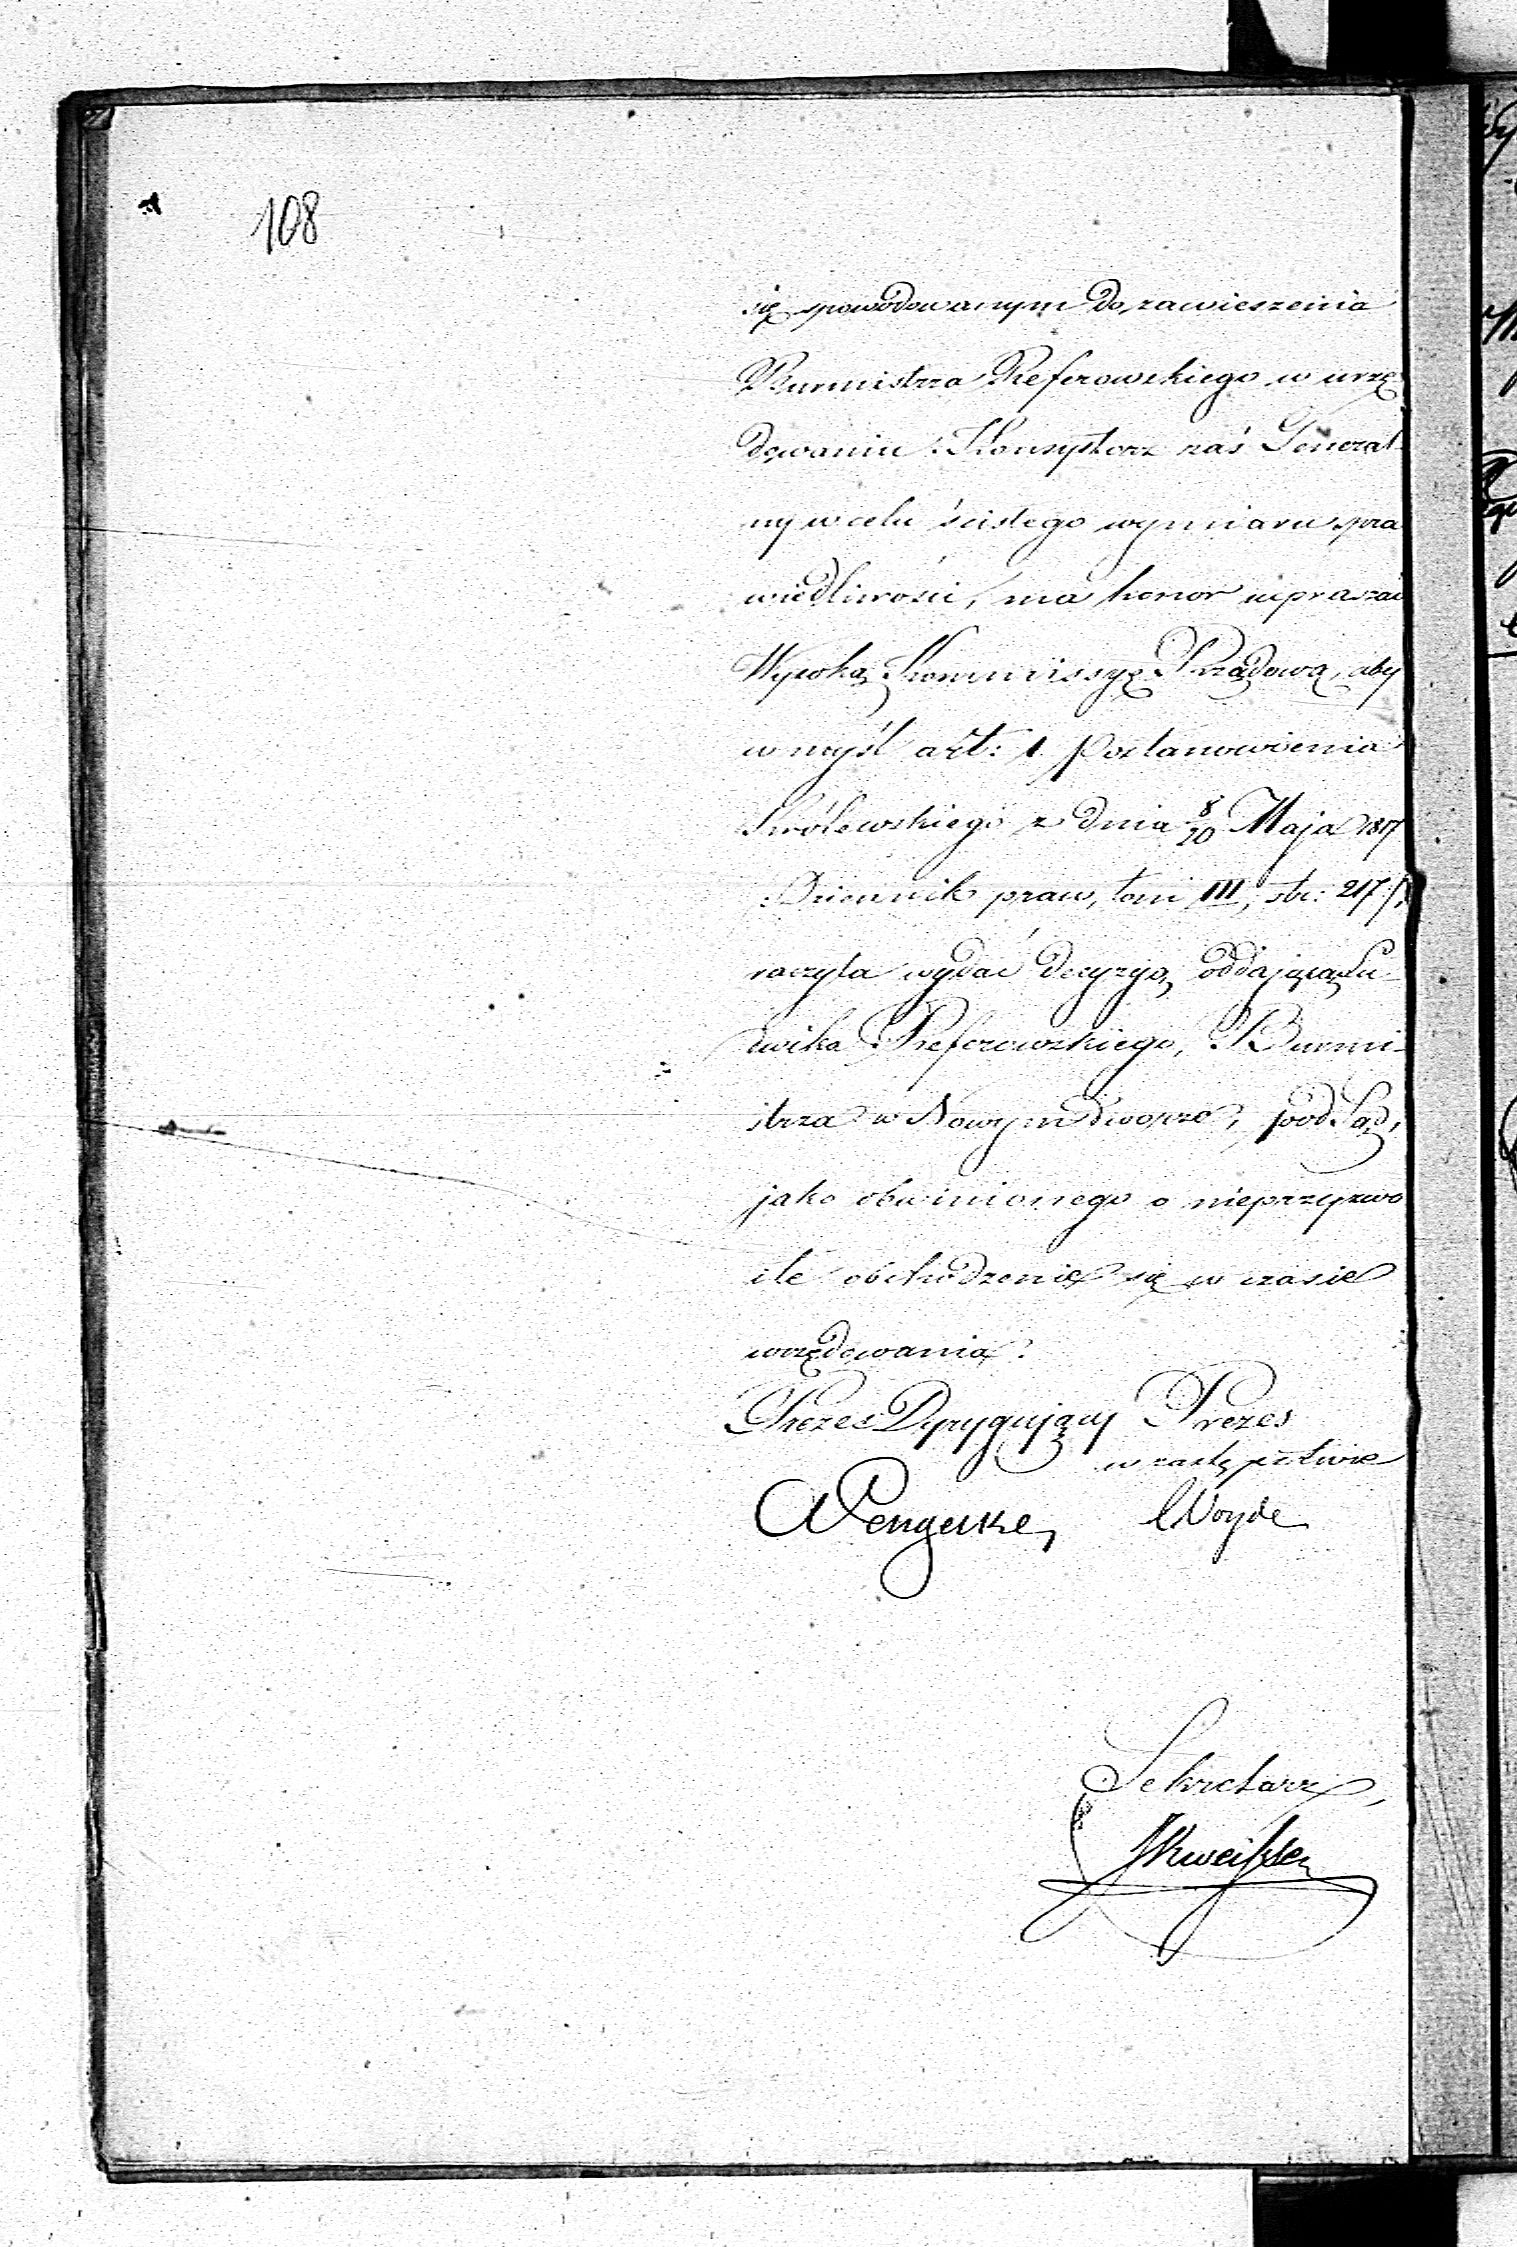 108
się spowodowanym do zawieszenia
Burmistrza Referowskiego w urzę
dowaniu. Konsystorz zaś General
ny w celu ścisłego wymiaru spra
wiedliwości, ma honor upraszać
Wysoką Kommissyę Rządową, aby
w myśl art: 1 Postanowienia
Królewskiego z dnia 8/20 Maja 1817
Dziennik praw, tom III, str: 217/,
raczyła wydać decyzyą, oddającą Lu-
dwika Referowskiego, Burmi-
strza w Nowymdworze, pod Sąd,
jako obwinionego o nieprzyzwo
ite obchodzenie się w czasie
urzędowania.
Prezes Dyrygujący Prezes
w zastępstwie
Wengerke, Woyde
Sekretarz,